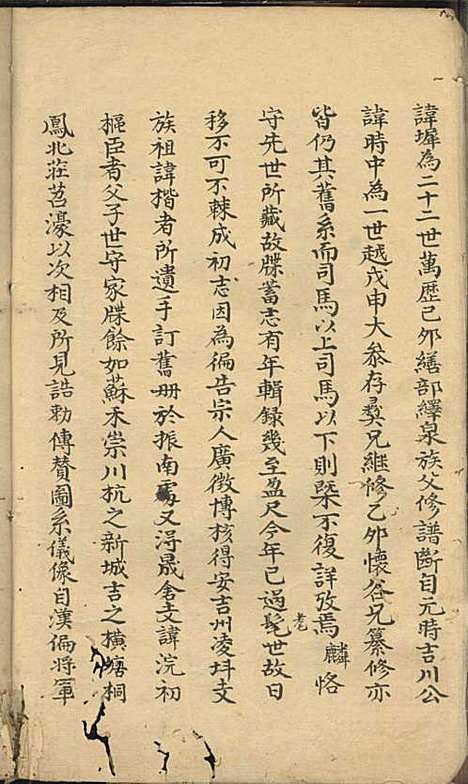 諱墀為二十二世萬歷己夘繕部繹泉族父修譜斷自元時吉川公
諱時中為一世越戊申大叅存彝兄繼修乙夘懷谷兄纂修亦
皆仍其舊系而司馬以上司馬以下則槩不復詳攷焉麟恪
守先世所藏故牒蓄志有年輯録幾至盈尺今年已過髦世故日
耄
移不可不棘成初志因為徧告宗人廣徴博核得安吉州凌抖支
族祖諱楷者所遺手訂舊册於振南處又淂晟舍支諱浣初
樞臣者父子世守家牒餘如蘇禾崇川杭之新城吉之横塘桐
鳳北莊苕濠以次相及所見誥勅傳賛圖系儀像自漢偏將軍